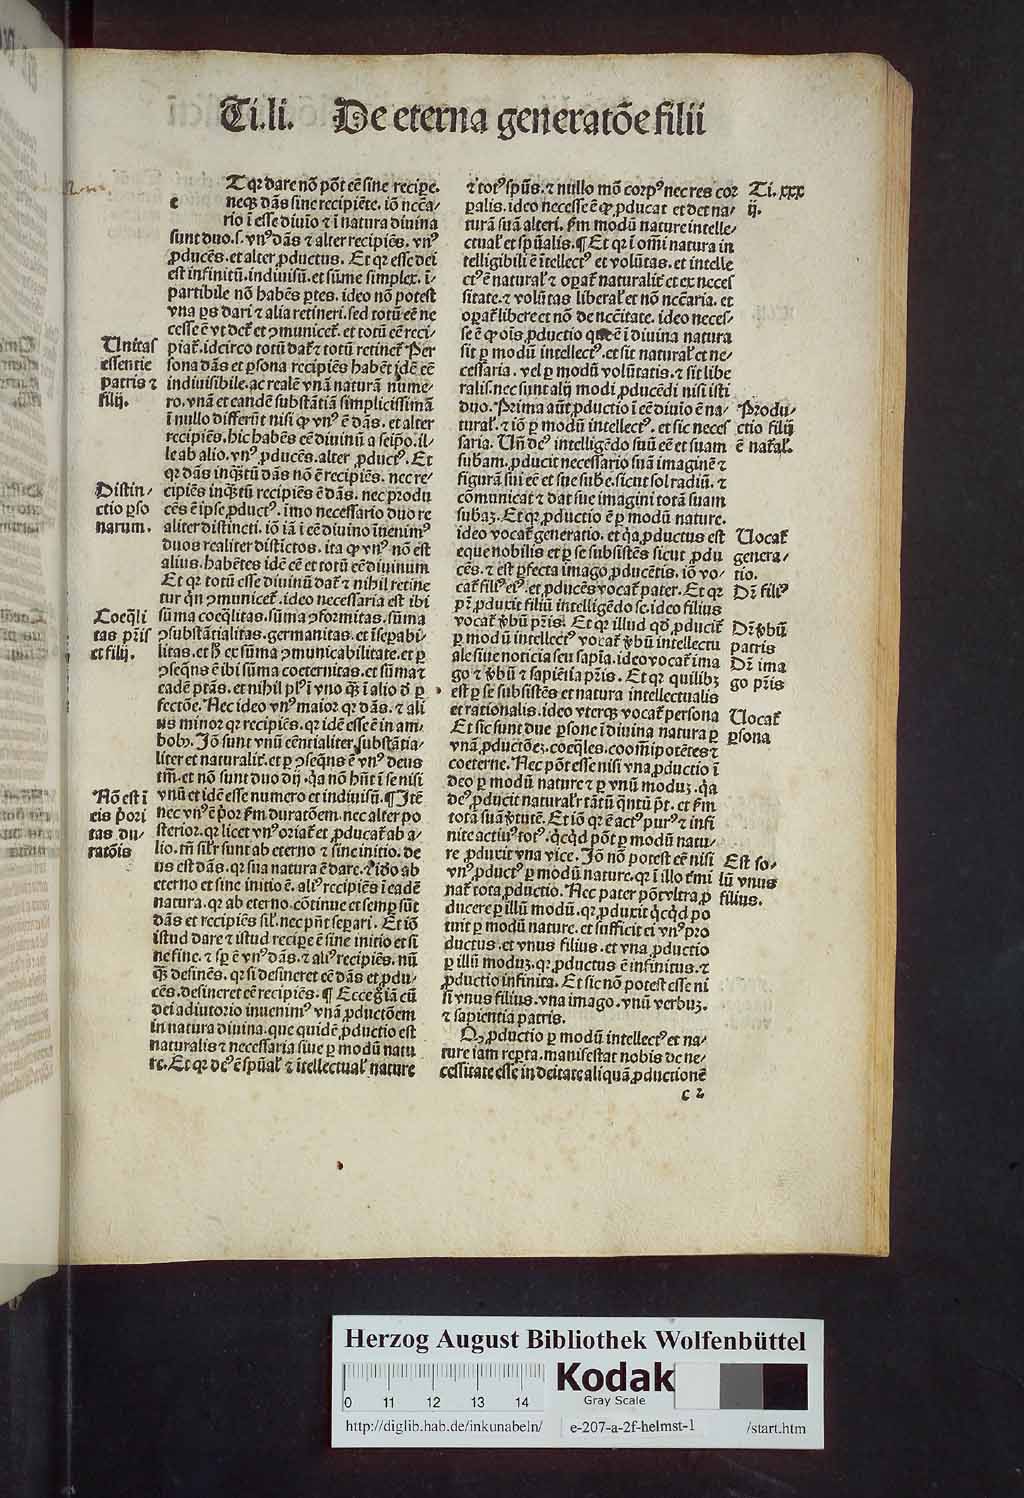 Ti.li. De eterna generatōe filii
Tqꝛ dare nō pōt eē sine recipe.
e neqꝫ dās sine recipiēte. iō nccā-
rio ī esse diuīo ⁊ ī natura diuina
sunt duo.s. vnꝰ dās ⁊ alter recipiēs. vnꝰ
ꝓducēs. et alter ꝓductus. Et qꝛ esse dei
est infinitū. indiuisū. et sūme simplex. ī-
partibile nō habēs ꝑtes. ideo nō potest
vna ꝑs dari ⁊ alia retineri. sed totū eē ne
cesse ē vt det᷑ et ꝯmunicet᷑. et totū eē reci-
piat᷑. idcirco totū dat᷑ ⁊ totū retinet᷑ Per
sona dās et ꝑsona recipiēs habēt idē eē
indiuisibile. ac realē vnā naturā nume-
ro. vnā et eandē substātiā simplicissimā
ī nullo differūt nisi ꝙ vnꝰ ē dās. et alter
recipiēs. hic habēs eē diuinū a seipō. il-
le ab alio. vnꝰ ꝓducēs. alter ꝓductꝰ. Et
qꝛ dās inqꝫtū dās nō ē recipiēs. nec re-
cipiēs inqꝫtū recipiēs ē dās. nec produ
cēs ē ipse ꝓductꝰ. īmo necessario duo re
aliter distincti. iō iā ī eē diuino īuenimꝰ
duos realiter distictos. ita ꝙ vnꝰ nō est
alius. habētes idē eē et totū eē diuinum
Et qꝛ totū esse diuinū dat᷑ ⁊ nihil retine
tur qͥn ꝯmunicet᷑. ideo necessaria est ibi
sūma coeq̄litas. sūma ꝯformitas. sūma
ꝯsubstātialitas. germanitas. et īsepabi-
litas. et ex sūma ꝯmunicabilitate. et ꝑ
ꝯseqn̄s ē ibi sūma coeternitas. et sūma ⁊
eadē ptās. et nihil plꝰ ī vno qꝫ ī alio ꝑ
fectōe. Nec ideo vnꝰ maior qꝛ dās. ⁊ ali
us minor qꝛ recipiēs. qꝛ idē esse ē in am-
bobꝰ. Iō sunt vnū eēntialiter substātia-
liter et naturalit᷑. et ꝑ ꝯseqn̄s ē vnꝰ deus
tm̄. et nō sunt duo dij. qꝛ nō hn̄t ī se nisi
vnū et idē esse numero et indiuisū. ¶ Itē
nec vnꝰ ē pͥor ẜm duratōem. nec alter po
sterior. qꝛ licet vnꝰ oriat᷑ et ꝓducat᷑ ab a-
lio. tn̄ silr̄ sunt ab eterno ⁊ sine initio. de
us est dās. qꝛ sua natura ē dare. ⁊ ido ab
eterno et sine initio ē. aliꝰ recipiēs ī eadē
natura. qꝛ ab eterno. cōtinue et semꝑ sūt
dās et recipiēs sil᷑. nec pn̄t separi. Et iō
istud dare ⁊ istud recipe ē sine initio et si
ne fine. ⁊ sꝑ ē vnꝰ dās. ⁊ aliꝰ recipiēs. nū
qꝫ desinēs. qꝛ si desineret eē dās et ꝓdu-
cēs. desineret eē recipiēs. ¶ Ecce iā cū
dei adiutorio inuenimꝰ vnā ꝓductōem
in natura diuina. que quidē ꝓductio est
naturalis ⁊ necessaria siue ꝑ modū natu
re. Et qꝛ deꝰ ē spūal᷑ ⁊ ītellectual᷑ nature
⁊ totꝰ spūs. ⁊ nullo mō corpꝰ nec res cor
ꝑalis. ideo necesse ē ꝙ ꝓducat et det na-
turā suā alteri. ẜm modū nature intelle-
ctual᷑ et spūalis. ¶ Et qꝛ ī omī natura in
telligibili ē ītellectꝰ et volūtas. et intelle
ctꝰ ē natural᷑ ⁊ oꝑat᷑ naturalit᷑ et ex neces
sitate. ⁊ volūtas liberal᷑ et nō nccāria. et
oꝑat᷑ libere et nō de nccītate. ideo neces-
se ē ꝙ oīs ꝓductio ē ī diuina natura
sit ꝑ modū intellectꝰ. et sit natural᷑ et ne-
cessaria. vel ꝑ modū volūtatis. ⁊ sit libe
ralis. nec sunt alij modi ꝓducēdi nisi isti
duo. Prima aūt ꝓductio ī eē diuīo ē na-
tural᷑. ⁊ iō ꝑ modū intellectꝰ. et sic neces
saria. Uñ deꝰ intelligēdo suū eē et suam
subam. ꝓducit necessario suā imaginē ⁊
figurā sui eē et sue sube. sicut sol radiū. ⁊
cōmunicat ⁊ dat sue imagini totā suam
subaꝫ. Et qꝛ ꝓductio ē ꝑ modū nature.
ideo vocat᷑ generatio. et qꝛ ꝓductus est
eque nobilis et ꝑ se subsistēs sicut ꝓdu
cēs. ⁊ est ꝑfecta imago ꝓducētis. iō vo-
cat᷑ filiꝰ eiꝰ. et ꝓducēs vocat᷑ pater. Et qꝛ
pr̄ ꝓduxit filiū intelligēdo se. ideo filius
vocat᷑ v̄bū pr̄is. Et qꝛ illud qd̄ ꝓducit᷑
ꝑ modū intellectꝰ vocat᷑ v̄bū intellectu
ale siue noticia seu sapīa. ideo vocat᷑ ima
go ⁊ v̄bū ⁊ sapiētia pr̄is. Et qꝛ quilibꝫ
est ꝑ se subsistēs et natura intellectualis
et rationalis. ideo vterqꝫ vocat᷑ persona
Et sic sunt due ꝑsone ī diuina natura ꝑ
vnā ꝓductōeꝫ. coeq̄les. coomīpotētes ⁊
coeterne. Nec pōt esse nisi vna ꝓductio ī
deo ꝑ modū nature ⁊ ꝑ vnū moduꝫ. qꝛ
deꝰ ꝓducit naturalr̄ tātū qͣntū pt̄. et ẜm
totā suā v̄tutē. Et iō qꝛ ē actꝰ purꝰ ⁊ infi
nite actiuꝰ totꝰ. qͥcqͥd pōt ꝑ modū natu-
re ꝓduxit vna vice. Iō nō potest eē nisi
vnꝰ ꝓductꝰ ꝑ modū nature. qꝛ ī illo t᷑mi
nat᷑ tota ꝓductio. Nec pater pōt vltra ꝓ
ducere ꝑ illū modū. qꝛ ꝓduxit qͥcqͥd po
tuit ꝑ modū nature. et sufficit ei vnꝰ pro
ductus. et vnus filius. et vna ꝓductio
ꝑ illū moduꝫ. qꝛ ꝓductus ē infinitus. ⁊
ꝓductio infinita. Et sic nō potest esse ni
si vnus filius. vna imago. vnū verbuꝫ.
⁊ sapientia patris.
Qꝫ ꝓductio ꝑ modū intellectꝰ et na-
ture iam reꝑta. manifestat nobis de ne-
cessitate esse in deitate aliquā ꝓductionē
c 2
Unitas
essentie
patris ⁊
filij.
Distin-
ctio ꝑso
narum.
Coeq̄li
tas pr̄is
et filij.
Nō est ī
eis pͥori
tas du-
ratōis
Ti. xxx
ij.
Produ-
ctio filij
ē nat᷑al᷑.
Uocat᷑
genera-
tio.
Dr̄ filiꝰ
Dr̄ v̄bū
patris
Dr̄ ima
go pr̄is
Uocat᷑
ꝑsona
Est so-
lū vnus
filius.
Herzog August Bibliothek Wolfenbüttel
0 11 12 13 14
Kodak
Gray Scale
http://diglib.hab.de/inkunabeln/ e-207-a-2f-helmst-1 /start.htm